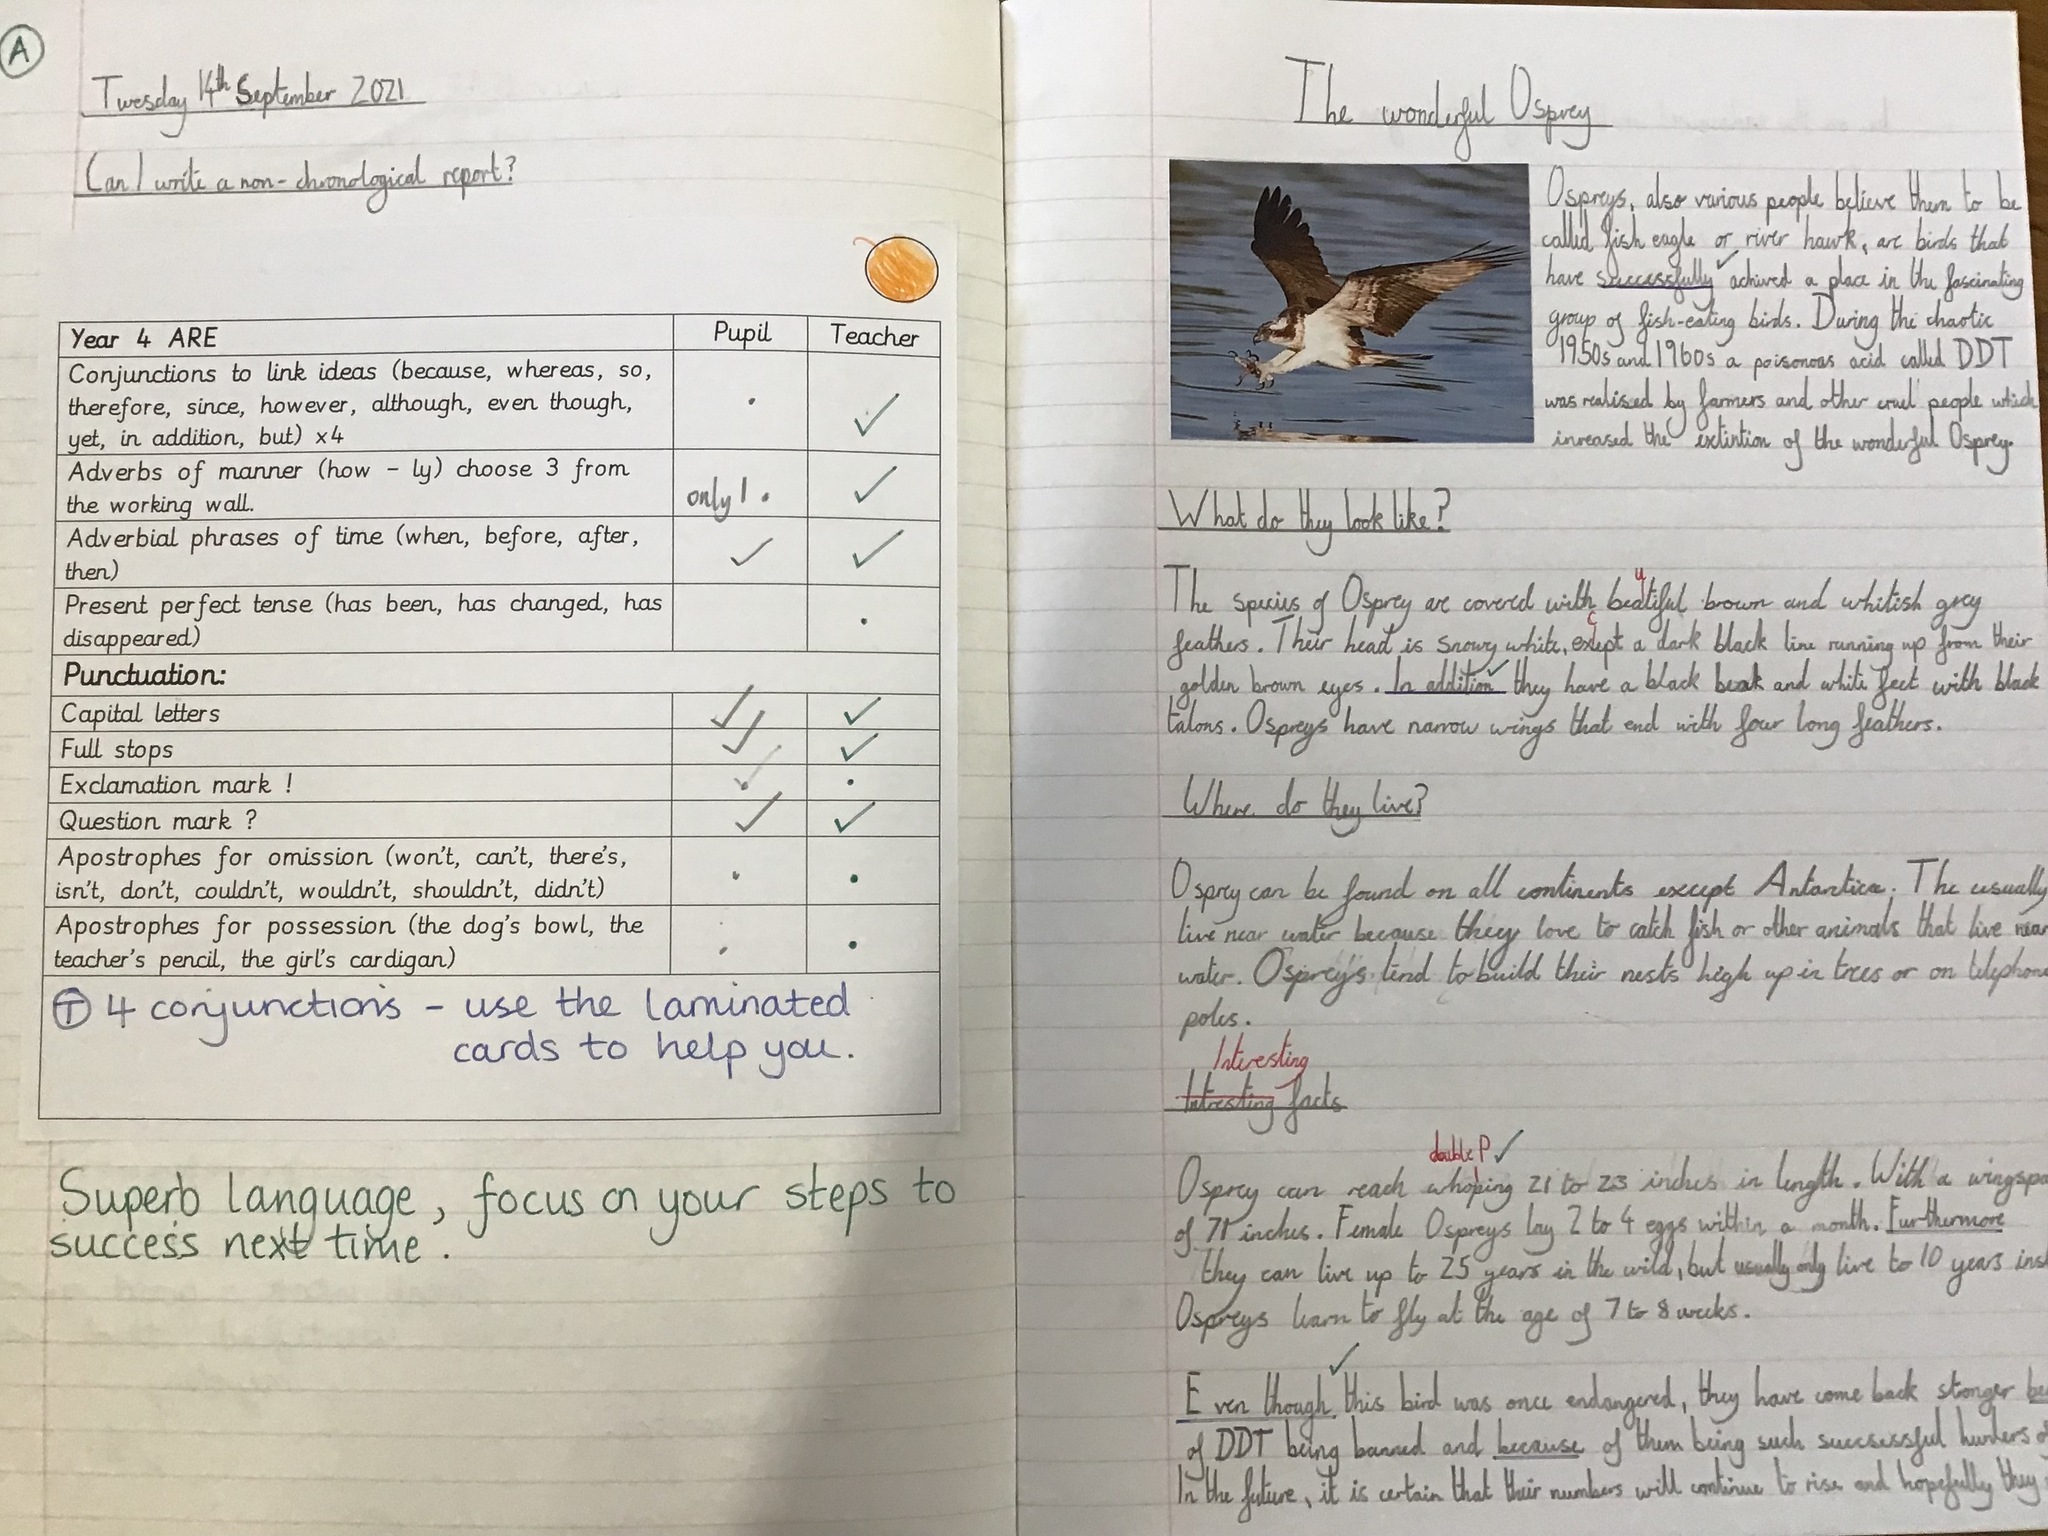 A
Tuesday 14th September 2021
Can I write a non-chronological report?
Year 4 ARE Pupil Teacher
Conjunctions to link ideas (because, whereas, so,
therefore, since, however, although, even though,
yet, in addition, but) x4
Adverbs of manner (how – ly) choose 3 from
the working wall.
only 1.
Adverbial phrases of time (when, before, after,
then)
Present perfect tense (has been, has changed, has
disappeared)
Punctuation:
Capital letters
Full stops
Exclamation mark !
Question mark ?
Apostrophes for omission (won't, can't, there's,
isn't, don't, couldn't, wouldn't, shouldn't, didn't)
Apostrophes for possession (the dog's bowl, the
teacher's pencil, the girl's cardigan)
T 4 conjunctions – use the laminated
cards to help you.
Superb language, focus on your steps to
success next time.
The wonderful Osprey
Ospreys, also various people believe them to be
called fish eagle or river hawk, are birds that
have successfully achived a place in the fascinating
group of fish-eating birds. During the chaotic
1950s and 1960s a poisonous acid called DDT
was realised by farmers and other cruel people which
inreased the extintion of the wonderful Osprey.
What do they look like?
u
The species of Osprey are covered with beatiful brown and whitish grey
c
feathers. Their head is snowy white, exept a dark black line running up from their
golden brown eyes. In addition they have a black beak and white feet with black
talons. Ospreys have narrow wings that end with four long feathers.
Where do they live?
Osprey can be found on all continents except Antartica. The usually
live near water because they love to catch fish or other animals that live near
water. Osprey's tend to build their nests high up in trees or on telephone
poles.
Interesting
Intresting facts
double P
Osprey can reach whoping 21 to 23 inches in length. With a wingspa
of 71 inches. Female Ospreys lay 2 to 4 eggs within a month. Furthermore
they can live up to 25 years in the wild, but usually only live to 10 years ins
Ospreys learn to fly at the age of 7 to 8 weeks.
Even though this bird was once endangered, they have come back stonger be
of DDT being banned and because of them being such successful hunters
In the future, it is certain that their numbers will continue to rise and hopefully they